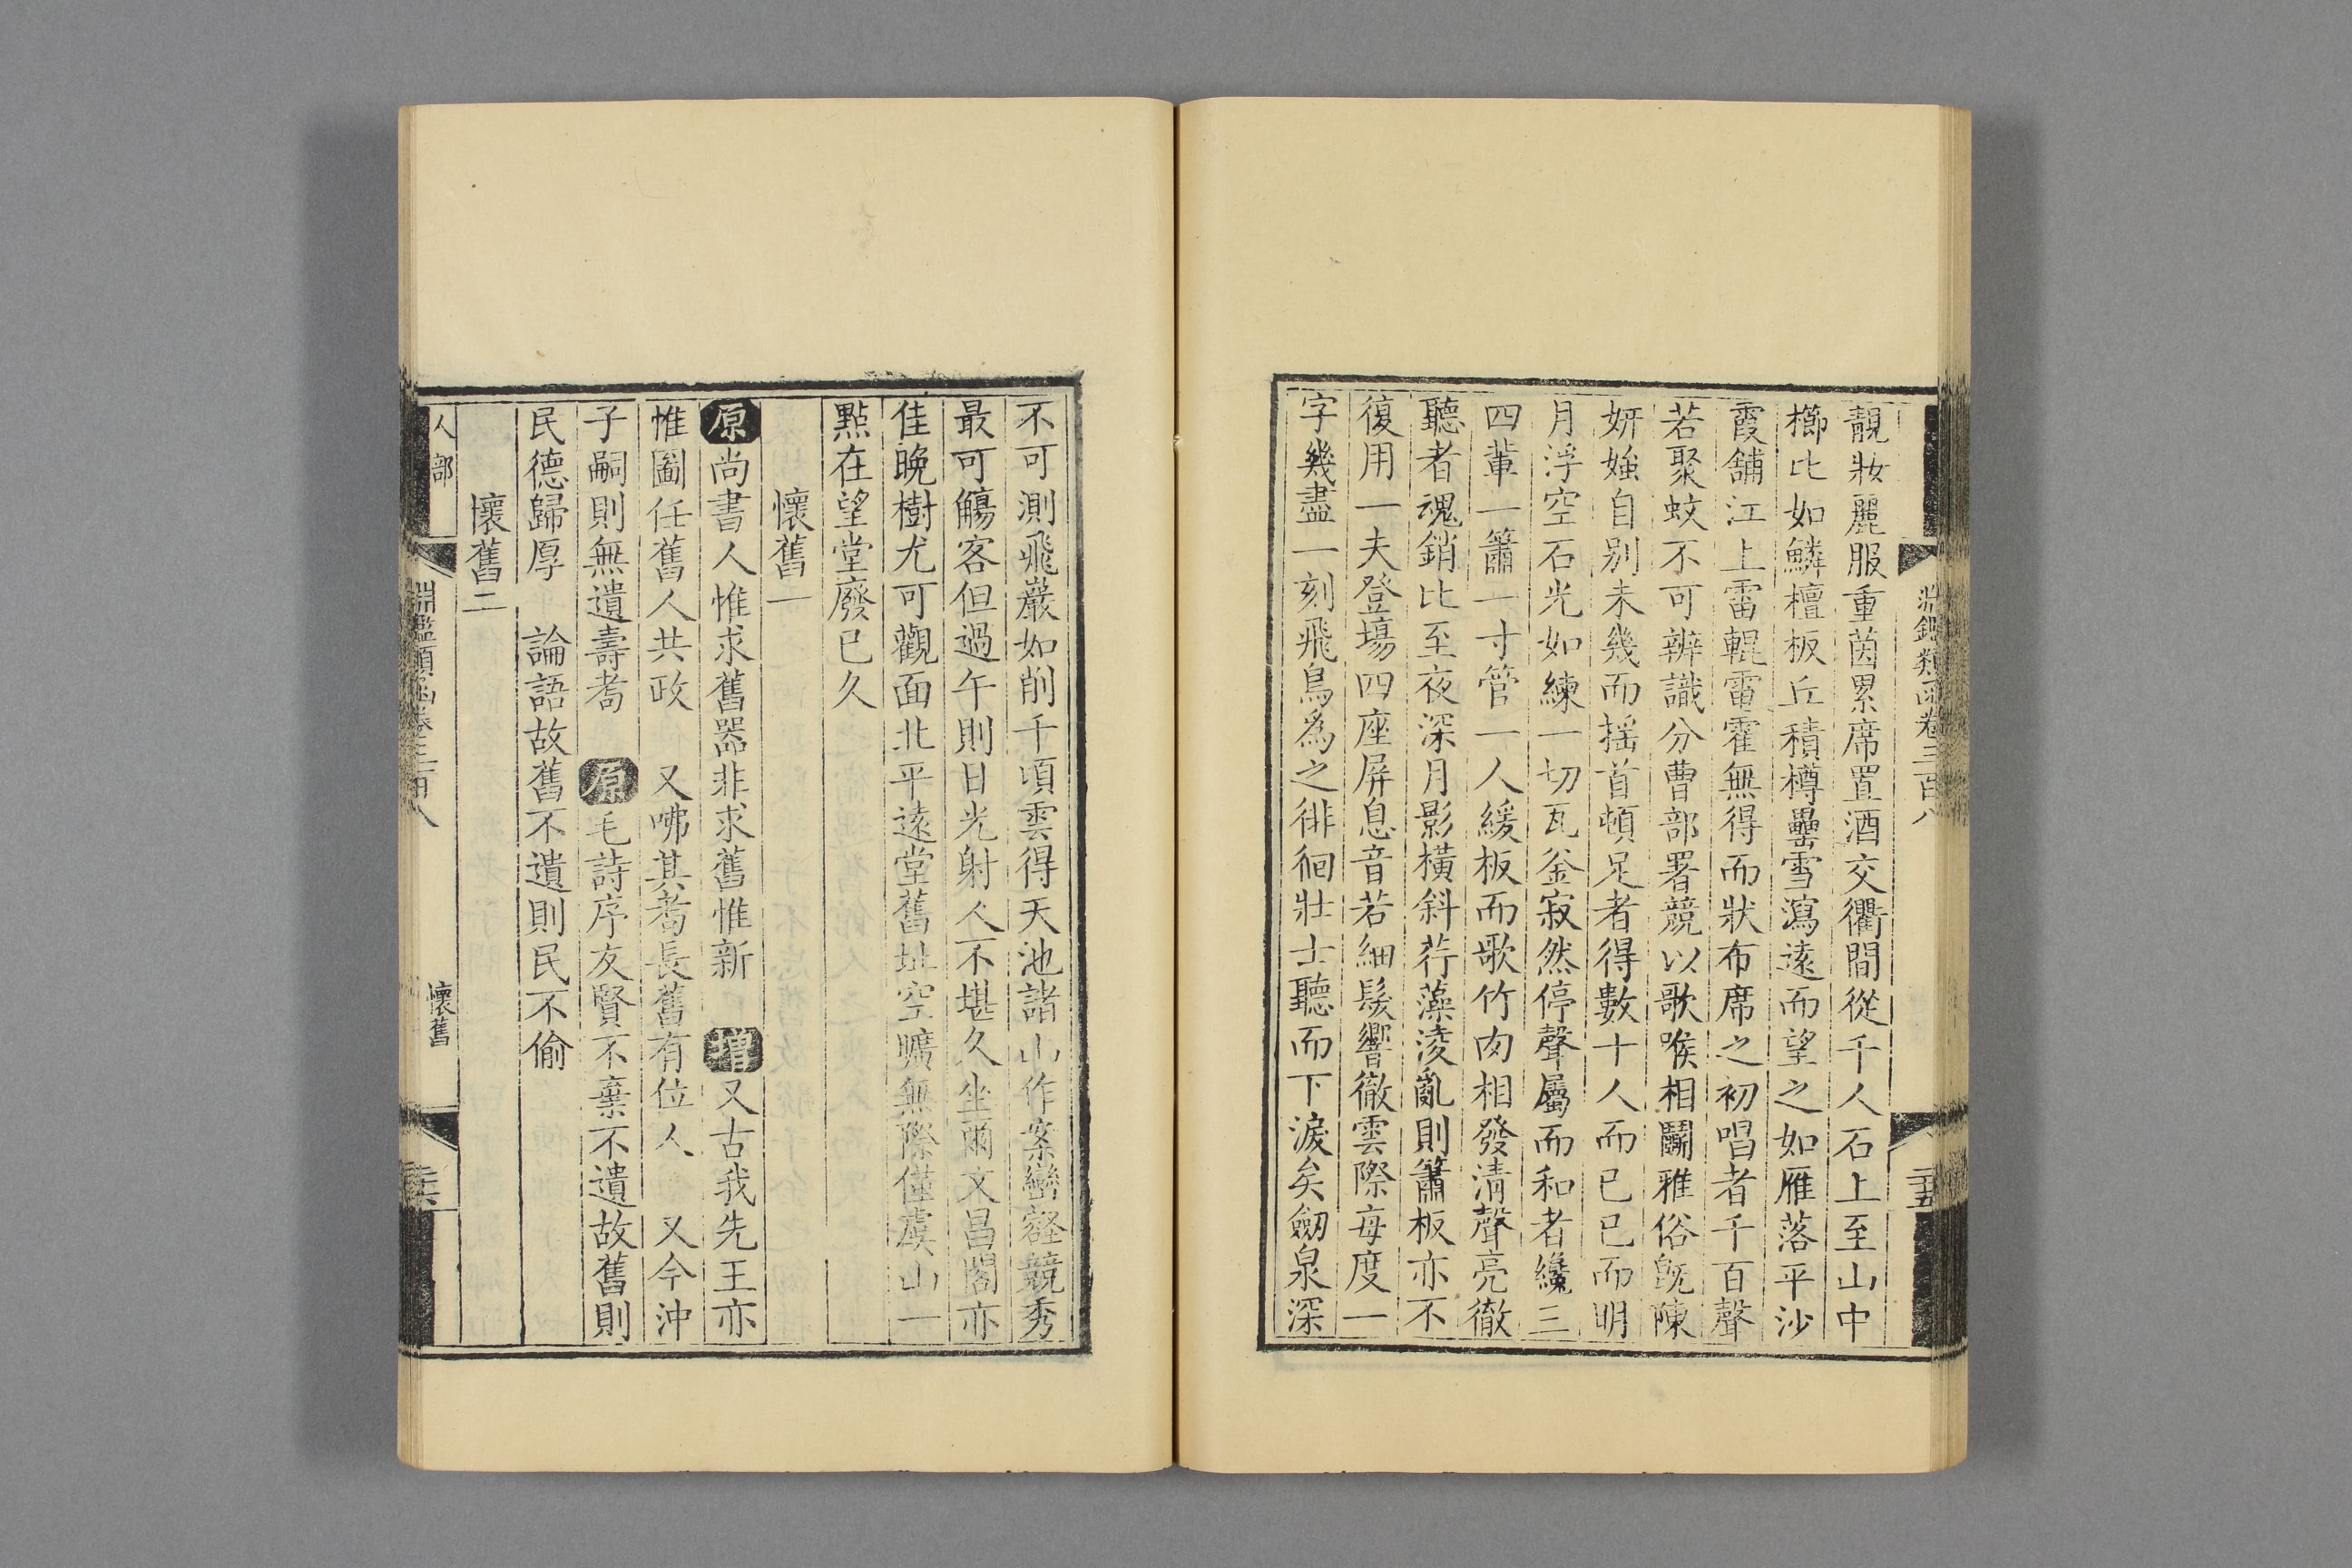 淵鑑類函卷三百八
二十五
靚妝麗服重茵累席置酒交衢間從千人石上至山中
櫛比如鱗檀板丘積樽罍雪瀉遠而望之如雁落平沙
霞舖江上雷輥電霍無得而狀布席之初唱者千百聲
若聚蚊不可辨識分曹部署競以歌喉相鬭雅俗旣陳
妍媸自别未幾而揺首頓足者得數十人而已已而明
月浮空石光如練一切瓦釜寂然停聲屬而和者纔三
四輩一簫一寸管一人緩板而歌竹肉相發清聲亮徹
聽者魂銷比至夜深月影橫斜荇藻淩亂則簫板亦不
復用一夫登場四座屏息音若細髮響徹雲際每度一
字幾盡一刻飛鳥爲之徘徊壯士聽而下淚矣劒泉深
不可測飛巖如削千頃雲得天池諸山作案巒壑競秀
最可觴客但過午則日光射人不堪久坐爾文昌閣亦
佳晚樹尤可觀面北平遠堂舊址空曠無際僅虞山一
點在望堂廢已久
懷舊一
原尚書人惟求舊器非求舊惟新 増又古我先王亦
惟圖任舊人共政 又咈其耇長舊有位人 又今沖
子嗣則無遺壽耇 原毛詩序友賢不棄不遺故舊則
民德歸厚 論語故舊不遺則民不偷
懷舊二
人部
淵鑑類函卷三百八
懷舊
二十六